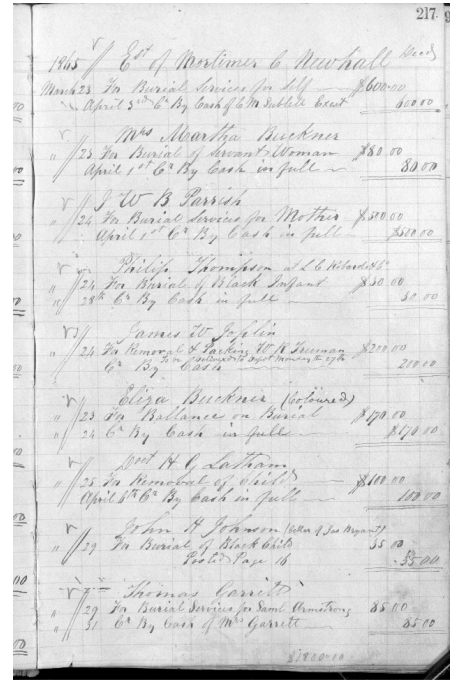 217
1865 Est of Mortimer C Newhall Decd
March 23 For Burial Services for Self $600.00
" April 3rd Cr By Cash of C M Sublett Exect 600.00
Mrs Martha Buckner
" 23 For Burial of Servant Woman $80.00
April 1st Cr By Cash in full 80.00
J W B Parrish
" 24 For Burial Services for Mother $500.00
April 1st Cr By Cash in full $500.00
Philip Thompson at L C
" 24 For Burial of Black Infant $50.00
" 28th Cr By Cash in full 50.00
James W Joplin
" 24 For Removal & Packing W R Freeman $200.00
to be Depot Monday 27th
Cr By Cash 200.00
Eliza Buckner (Coloured)
" 23 For Ballance on Burial $170.00
" 24 Cr By Cash in full $170.00
Doct H G Latham
" 25 For Removal of Child $100.00
April 6th Cr By Cash in full 100.00
John H Johnson (of Jas Bryant)
" 29 For Burial of Black Child 55.00
Posted Page 16 55.00
Thomas Garrett
" 29 For Burial Services for Saml Armstrong 85.00
" 31 Cr By Cash of Mrs Garrett 85.00